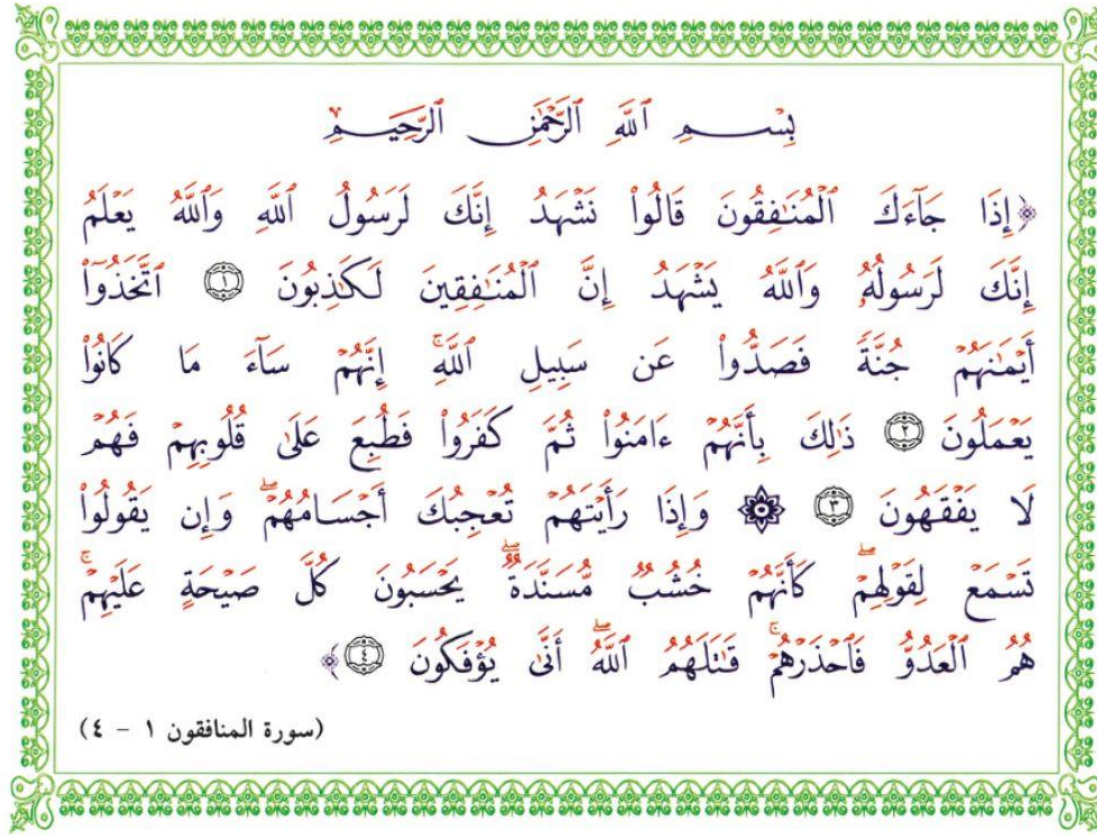 بِسْمِ ٱللَّهِ ٱلرَّحْمَٰنِ ٱلرَّحِيمِ
﴿إِذَا جَآءَكَ ٱلْمُنَٰفِقُونَ قَالُوا۟ نَشْهَدُ إِنَّكَ لَرَسُولُ ٱللَّهِ وَٱللَّهُ يَعْلَمُ
إِنَّكَ لَرَسُولُهُۥ وَٱللَّهُ يَشْهَدُ إِنَّ ٱلْمُنَٰفِقِينَ لَكَٰذِبُونَ ١ ٱتَّخَذُوٓا۟
أَيْمَٰنَهُمْ جُنَّةً فَصَدُّوا۟ عَن سَبِيلِ ٱللَّهِ ۚ إِنَّهُمْ سَآءَ مَا كَانُوا۟
يَعْمَلُونَ ٢ ذَٰلِكَ بِأَنَّهُمْ ءَامَنُوا۟ ثُمَّ كَفَرُوا۟ فَطُبِعَ عَلَىٰ قُلُوبِهِمْ فَهُمْ
لَا يَفْقَهُونَ ٣ ۞ وَإِذَا رَأَيْتَهُمْ تُعْجِبُكَ أَجْسَامُهُمْ ۖ وَإِن يَقُولُوا۟
تَسْمَعْ لِقَوْلِهِمْ ۖ كَأَنَّهُمْ خُشُبٌ مُّسَنَّدَةٌ ۖ يَحْسَبُونَ كُلَّ صَيْحَةٍ عَلَيْهِمْ ۚ
هُمُ ٱلْعَدُوُّ فَٱحْذَرْهُمْ ۚ قَٰتَلَهُمُ ٱللَّهُ ۖ أَنَّىٰ يُؤْفَكُونَ ٤﴾
(سورة المنافقون ١ - ٤)